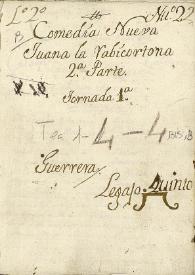 Lº 2º
Comedia Nueva
Juana la Rabicortona
2.ª Parte.
Jornada 1.ª
Tea 1-4-4
Guerrera
Legajo Quinto